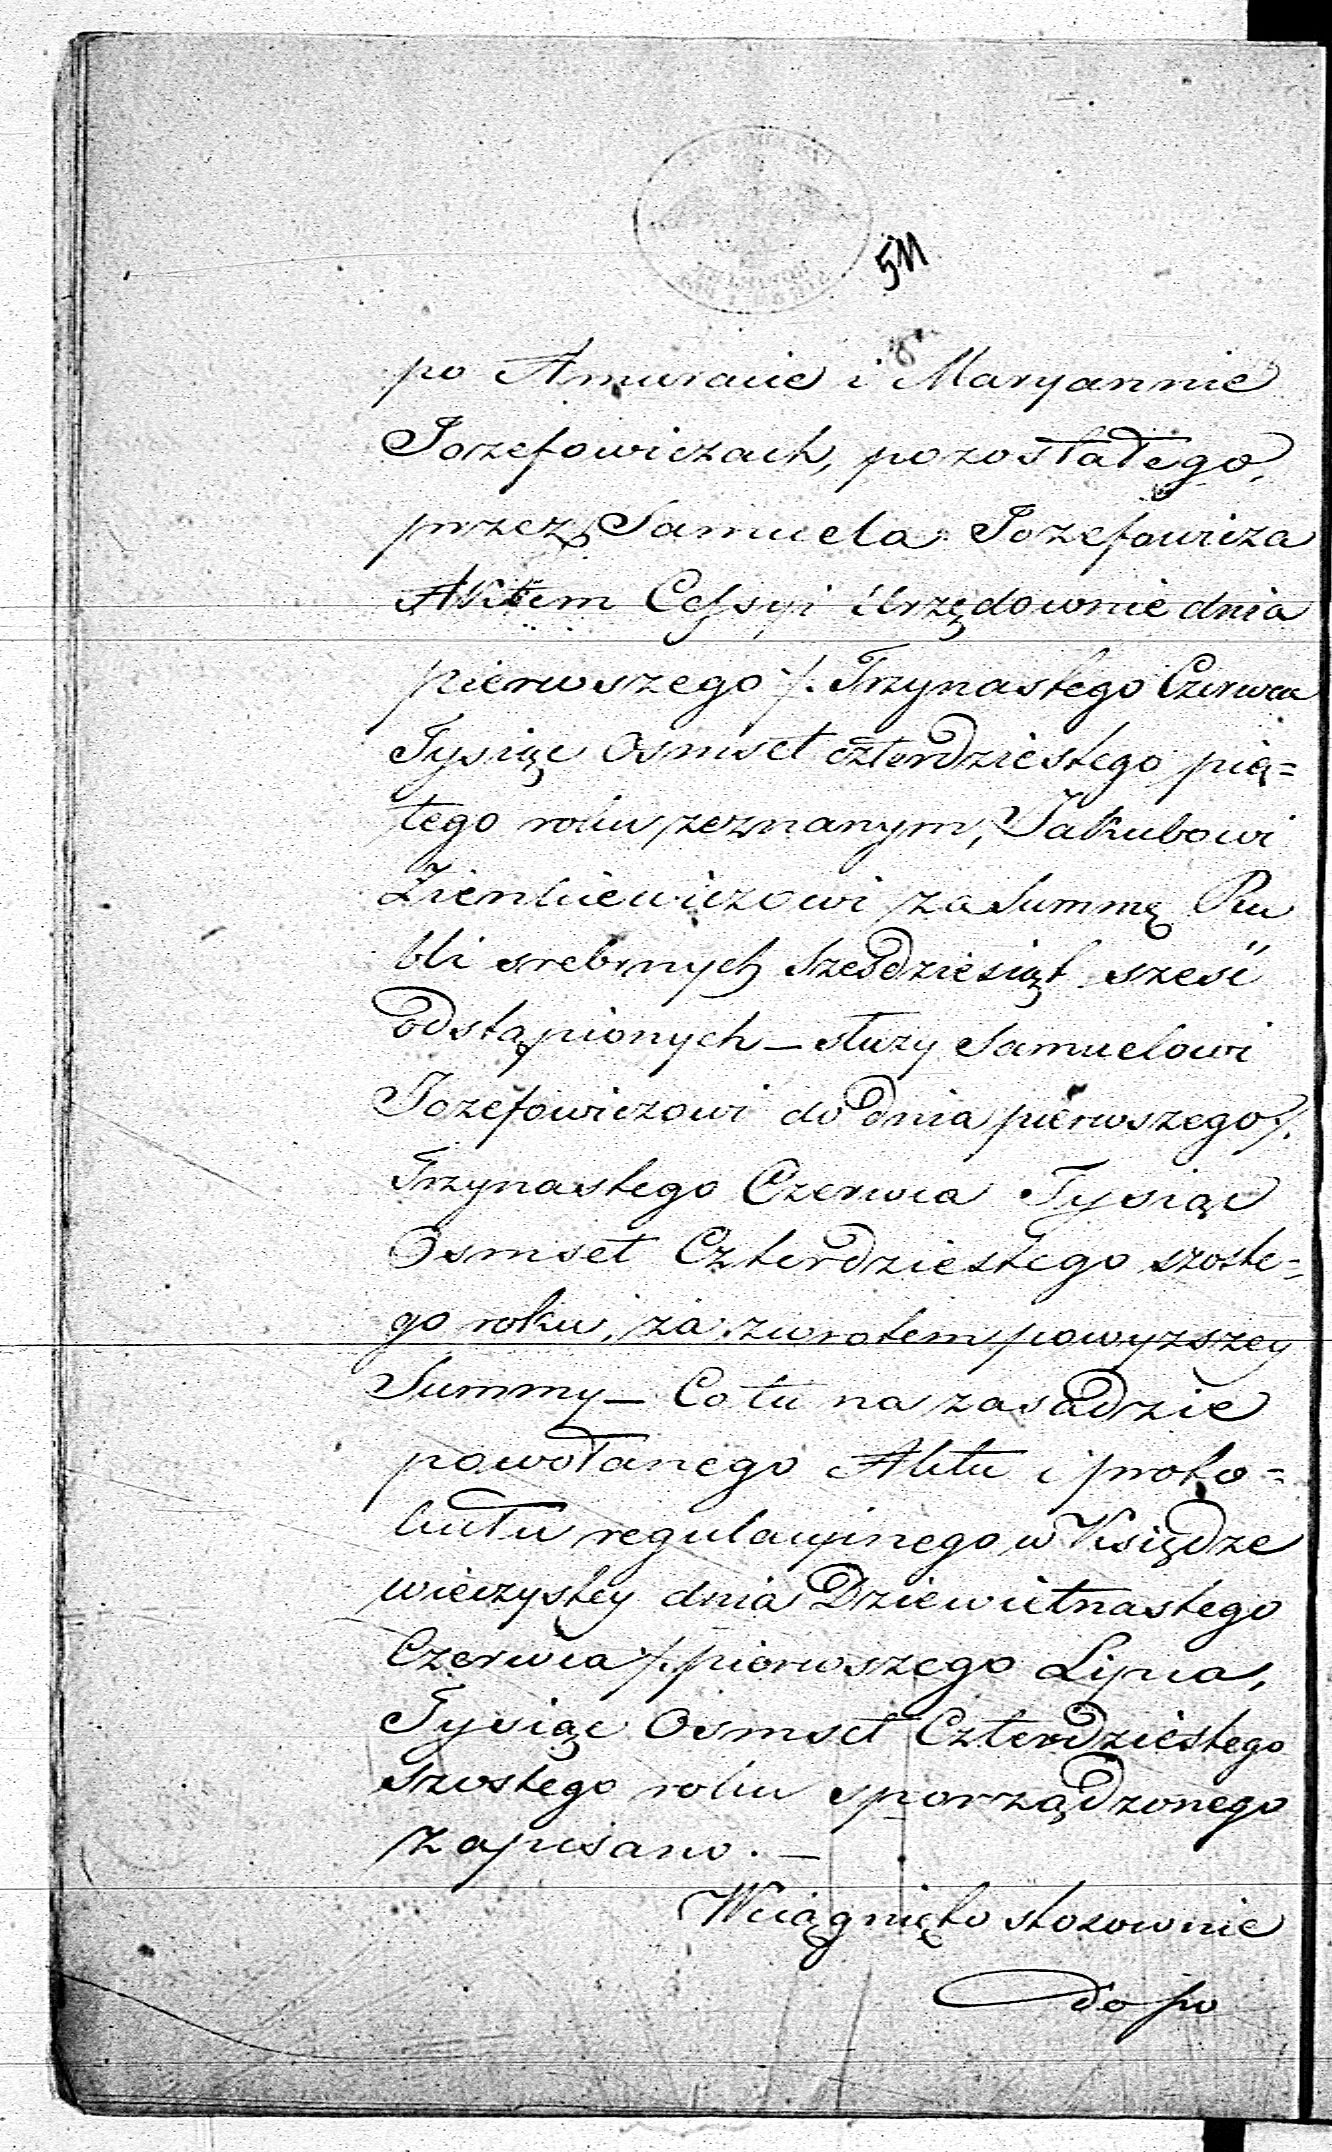 511
po Amuracie i Maryannie
Jozefowiczach, pozostałego,
przez Samuela Jozefowicza
Aktem Cessyi Urzędownie dnia
pierwszego /. Trzynastego Czerwca
Tysiąc Osmset czterdziestego pią=
tego roku zeznanym, Jakubowi
Zienkiewiczowi za Summę Ru
bli srebrnych Szesdziesiąt szesć
odstąpionych — służy Samuelowi
Jozefowiczowi do dnia pierwszego /.
Trzynastego Czerwca Tysiąc
Osmset Czterdziestego szoste=
go roku, za zwrotem powyzszey
Summy — Co tu na zasadzie
powołanego Aktu i proto=
kułu regulacyinego w Księdze
wieczystey dnia Dziewiętnastego
Czerwca /. pierwszego Lipca,
Tysiąc Osmset Czterdziestego
szostego roku sporządzonego
zapisano. —
Wciągnięto stosownie
do po